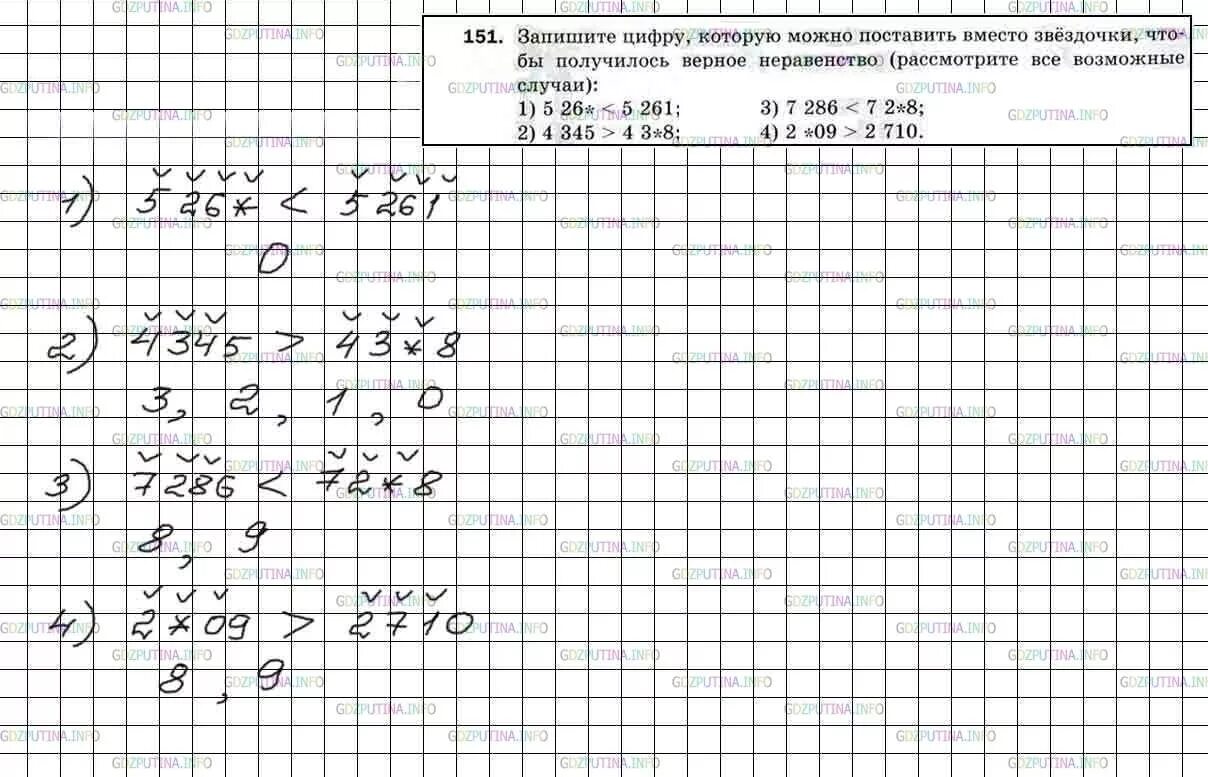 151. Запишите цифру, которую можно поставить вместо звёздочки, что-
бы получилось верное неравенство (рассмотрите все возможные
случаи):
1) 5 26* < 5 261; 3) 7 286 < 7 2*8;
2) 4 345 > 4 3*8; 4) 2 *09 > 2 710.
1) 5 26* < 5 261
0
2) 4345 > 43*8
3, 2, 1, 0
3) 7286 < 72*8
8, 9
4) 2*09 > 2710
8, 9
GDZPUTINA.INFO